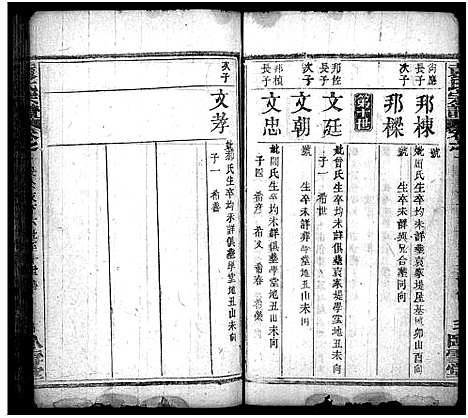 長子
邦棟
號
妣周氏生卒均未詳葬袁家堤屋基卯山酉向
次子
邦樑
號
生卒未詳與兄合葬同向
第十世
邦佐
長子
文廷
號
妣曾氏生卒均未詳俱葬學堂地丑山未向
子一 希世
次子
文朝
號
生卒未詳葬學堂地丑山未向
邦楨
長子
文忠
號
妣周氏生卒均未詳俱葬學堂地丑山未向
子四 希彥 希文 希春 希榮
次子
文孝
妣鄒氏生卒均未詳俱葬學堂地丑山未向
子一 希善